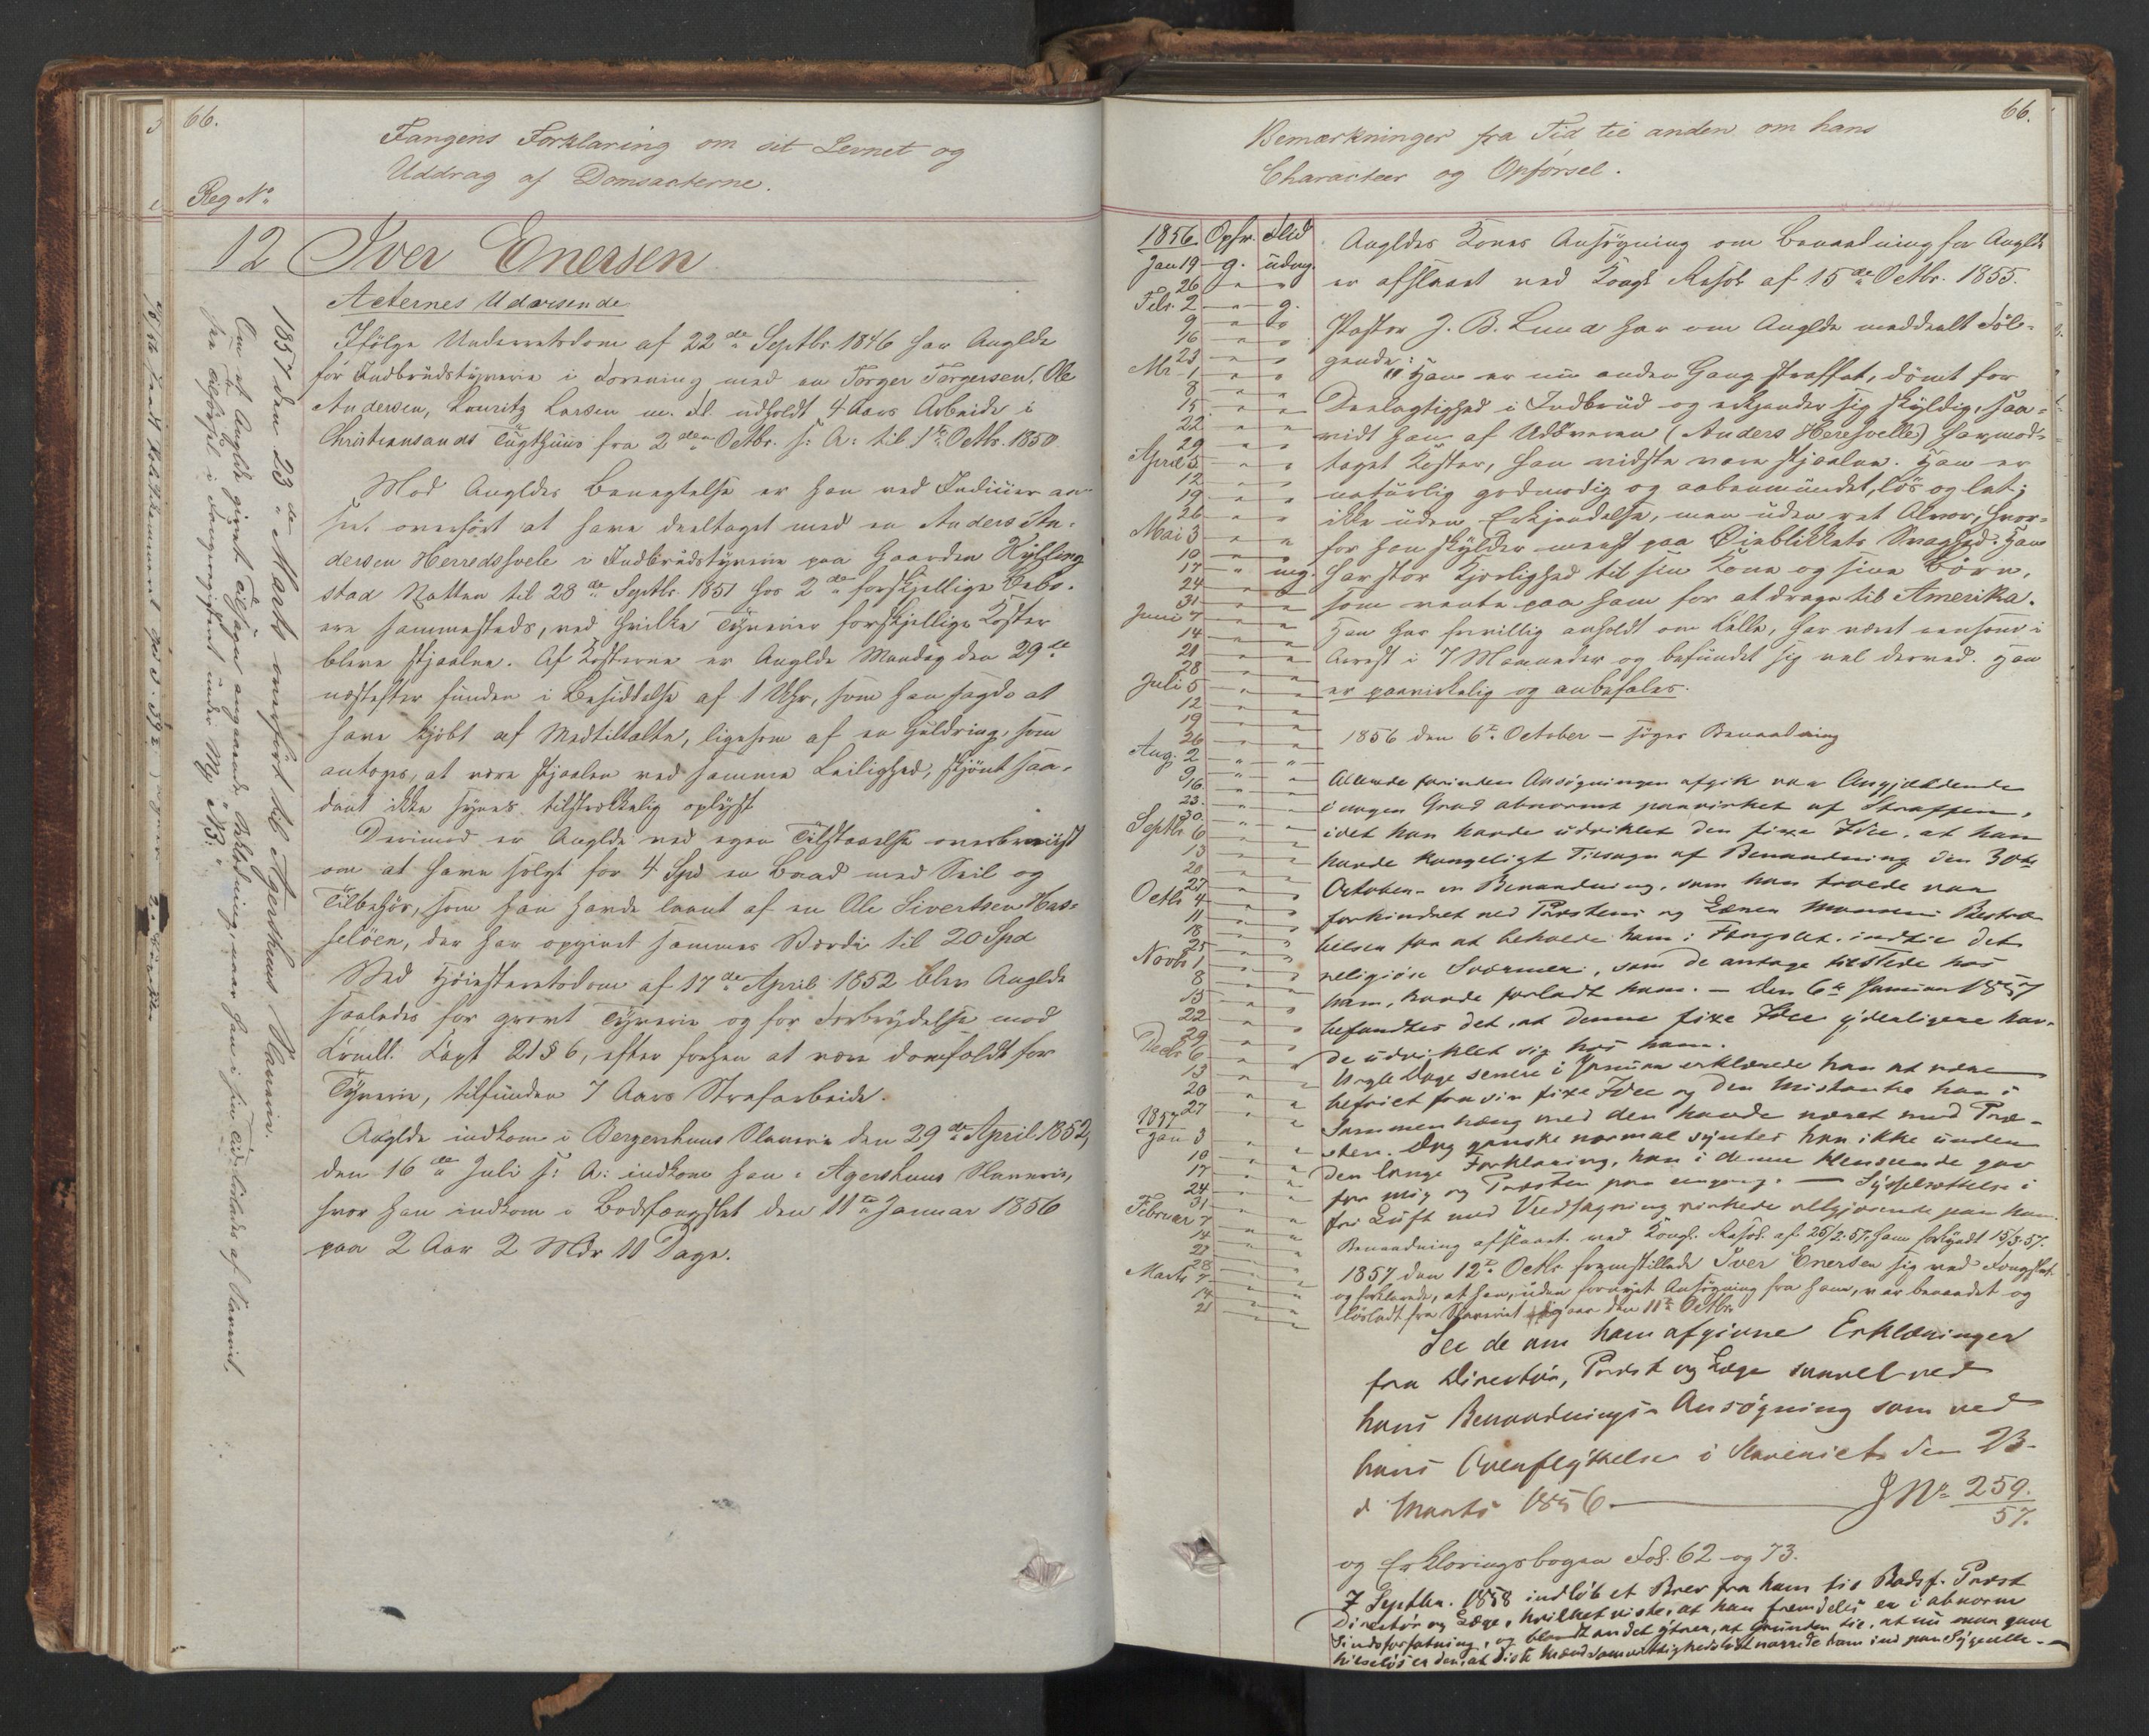 66.
Fangens Forklaring om sit Levnet og
Uddrag af Domsacterne.
Reg No
12 Iver Enersen
Acternes Udvisende
Ifölge Underretsdom af 22de Septbr 1846 har Anglde
for Indbrudstyverie i Forening med en Torger Torgersen, Ole
Andersen, Lauritz Larsen m. Fl. udholdt 4 Aars Arbeide i
Christiansands Tugthuus fra 2den Octbr. s: A: til 1ste Octbr. 1850
Mod Angldes Benegtelse er han ved Indicier an-
seet overfört at have deeltaget med en Anders An-
dersen Herredshvele i Indbrudstyverie paa Gaarden
stad Natten til 28de Septbr 1851 hos 2de forskjellige Bebo-
ere sammesteds, ved hvilke Tyverier forskjellige Koster
bleve stjaalne. Af Kosterne er Anglde Mandag den 29de
næstefter funden i Besiddelse af 1 Uhr, som han sagde at
have kjöbt af Medtiltalte, ligesom af en Guldring, som
antoges, at være stjaalen ved samme Leilighed, skjönt saa-
dant ikke synes tilstrækkelig oplyst
Derimod er Anglde ved egen Tilstaaelse overbeviist
om at have solgt for 4 Spd en Baad med Seil og
Tilbehör, som han havde laant af en Ole Sivertsen Has-
selöen, der har opgivet sammes Værdi til 20 Spd
Ved Höiesteretsdom af 17de April 1852 blev Anglde
saaledes for grovt Tyverie og for Forbrydelse mod
Crmll. Capt 21 § 6, efter forhen at være domfældt for
Tyverie, tilfunden 7 Aars Strafarbeide.
Anglde indkom i Bergenhuus Slaverie den 29de April 1852,
den 16de Juli s: A: indkom han i Agershuus Slaverie,
hvor han indkom i Bodsfængslet den 11te Januar 1856
paa 2 Aar 2 Mdr 11 Dage.
1857 den 23de Marts overfört til Agershuus Slaverie.
Om et Anglde givet Tilsagn angaaende Beklædning, naar han i sin Tid löslades af Slaveriet,
see Tilförsel i Fangeregisteret under Reg. No 
66.
Bemærkninger fra Tid til anden om hans
Characteer og Opförsel.
1856 Opfr. Flid
Jan 19 g. udm.
26
Febr. 2 g.
9
16
23
Mr. 1
8
15
22
29
April 5
12
19
26
Mai 3
10
17 mg.
24
31
Juni 7
14
21
28
Juli 5
12
19
26
Aug. 2
9
16
23.
30.
Septbr 6
13
20
27
Octbr 4
11
18
25
Novbr 1
8
15
22
29
Decbr 6
13
20
27
1857
Jan 3
10
17
24
31
Februar 7
14
21
28
Marts 7
14
21
Angldes Kones Ansögning om Benaadning for Anglde
er afslaaet ved Kongl Resol: af 15de Octbr. 1855.
Pastor J. B. Lund har om Anglde meddeelt Föl-
gende:
"Han er nu anden Gang straffet, dömt for
Deelagtighed i Indbrud og erkjender sig skyldig, saa-
vidt han af Udöveren (Anders Herehvelle) har mod-
taget Koster, han vidste vare stjaalne. Han er
naturlig godmodig og aabenmundet, lös og let;
ikke uden Erkjendelse, men uden ret Alvor, hvor-
for han skylder meest paa Öieblikkets Svaghed. Han
har stor Kjerlighed til sin Kone og sine Börn,
som vente paa ham for at drage til Amerika.
Han har frivillig anholdt om Celle, har været eensom i
Arrest i 7 Maaneder og befundet sig vel derved. Han
er paavirkelig og anbefales.
1856 den 6te October – söger Benaadning
Allerede forinden Ansögningen afgik var Angjeldende
i nogen Grad abnormt paavirket af Straffen,
idet han havde udviklet den fixe Idee, at han
havde kongeligt Tilsagn af Benaadning den 30te
October – en Benaadning, som han troede var
forhindret ved Præstens og Lægen Monsens Bestræ-
belser for at beholde ham i Fængslet, indtil det
religiöse Sværmeri, som de antage tilstede hos
ham, havde forladt ham. – Den 6te Januar 1857
befandtes det, at denne fixe Idee yderligere hav-
de udviklet sig hos ham.
Nogle Dage senere i Januar erklærede han at være
befriet fra sin fixe Idee og den Mistanke han i
Sammenhæng med den havde næret mod Præ-
sten. Dog ganske normal syntes han ikke under
den lange Forklaring, han i denne Henseende gav
for mig og Præsten paa engang. — Sysselsættelse i
fri Luft med Vedsagning virkede velgjörende paa ham.
Benaadning afslaaet ved Kongl. Resol. af 25/2. 57, ham forkyndt 15/3. 57.
1857 den 12te Octbr fremstillede Iver Enersen sig ved Fængslet
og forklarede, at han, uden fornyet Ansögning fra ham, var benaadet og
lösladt fra Slaveriet igaar den 11te Octbr
See de om ham afgivne Erklæringer
fra Directör, Præst og Læge saavel ved
hans Benaadnings-Ansögning som ved
hans Overflyttelse i Slaveriet den 23-
d Marts 1856. — J No 259.
57.
og Erklæringsbogen Fol. 62 og 73.
7 Septbr. 1858 indlöb et Brev fra ham til Bodsf. Præst
Directör og Læge, hvilket viste, at han fremdeles er i abnorm
Sindsforfatning, og blandt andet ytrer, at Grunden til, at nu man gave